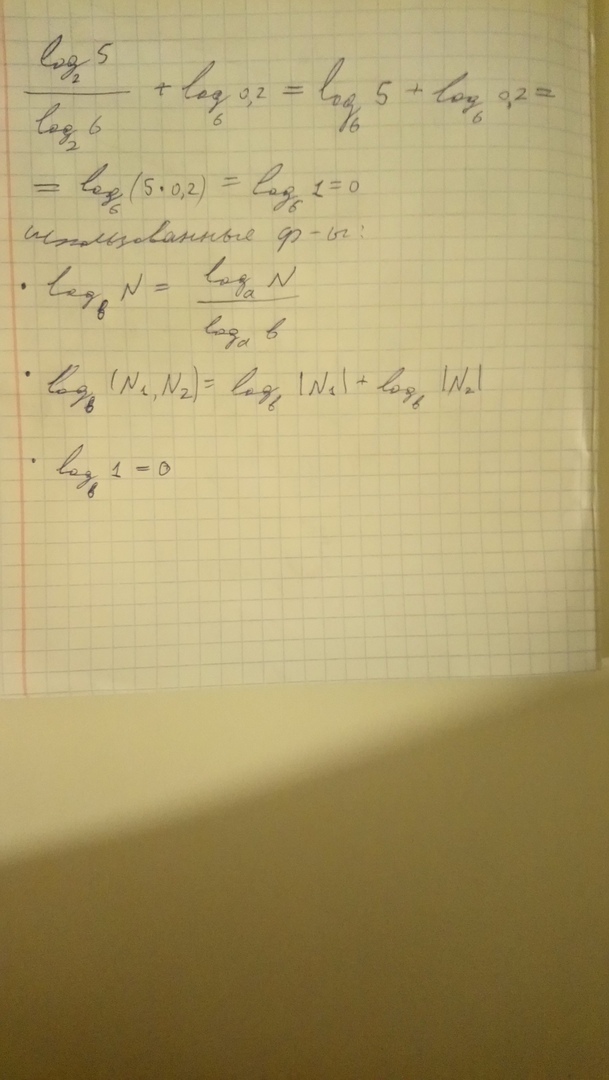 log₂ 5 / log₂ 6 + log₆ 0,2 = log₆ 5 + log₆ 0,2 =
= log₆ (5 · 0,2) = log₆ 1 = 0
использованные ф-ы:
• log_в N = log_a N / log_a в
• log_в (N₁, N₂) = log_в |N₁| + log_в |N₂|
• log_в 1 = 0